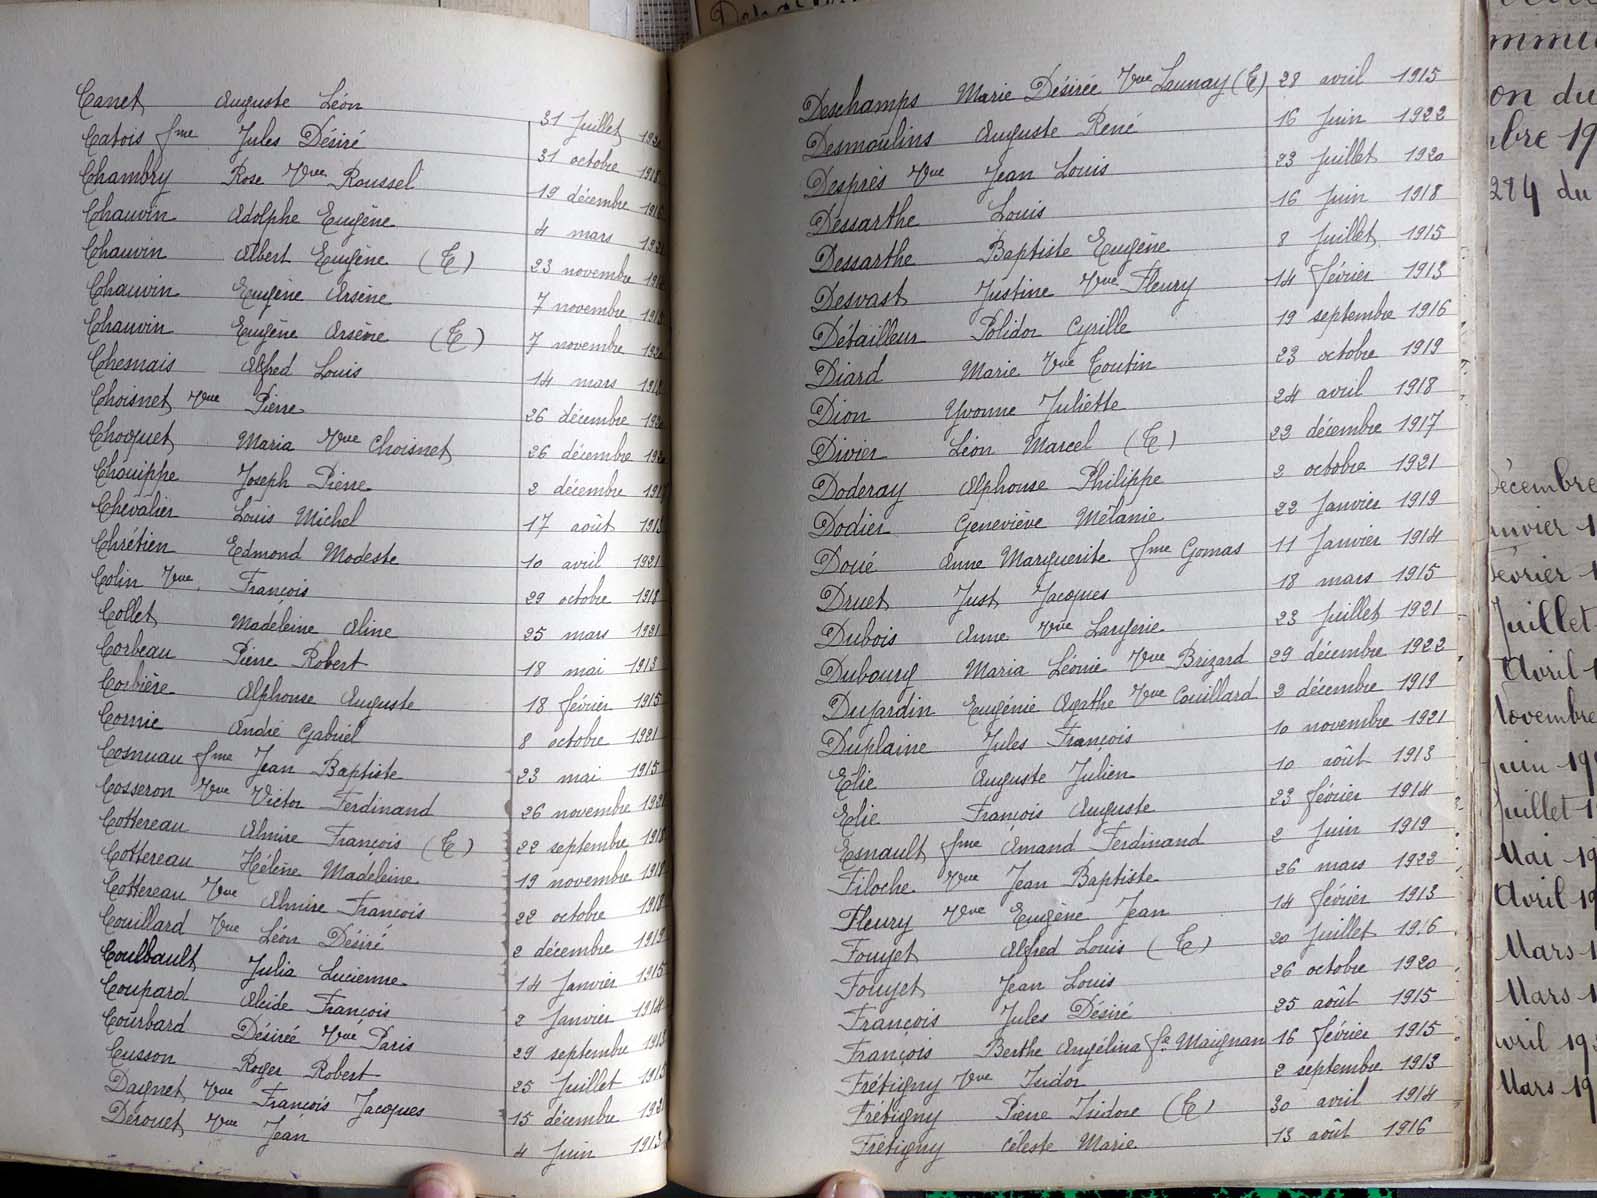 Canet Auguste Léon 31 Juillet
Catois fme Jules Désiré 31 octobre 1918
Chambry Rose Vve Roussel 19 décembre 1916
Chauvin Adolphe Eugène 4 mars
Chauvin Albert Eugène (E) 23 novembre
Chauvin Eugène Arsène 7 novembre
Chauvin Eugène Arsène (E) 7 novembre
Chesnais Alfred Louis 14 mars
Choisnet Vve Pierre 26 décembre
Choquet Maria Vve Choisnet 26 décembre
Chouippe Joseph Pierre 2 décembre 1917
Chevalier Louis Michel 17 août 1913
Chrétien Edmond Modeste 10 avril 1921
Colin Vve François 29 octobre 1918
Collet Madeleine Aline 25 mars 1921
Corbeau Pierre Robert 18 mai 1913
Corbière Alphonse Auguste 18 février 1915
Cornie André Gabriel 8 octobre 1921
Cosnuau fme Jean Baptiste 23 mai 1915
Cosseron Vve Victor Ferdinand 26 novembre
Cottereau Almire François (E) 22 septembre 1918
Cottereau Hélène Madeleine 19 novembre 1918
Cottereau Vve Almire François 22 octobre 1918
Couillard Vve Léon Désiré 2 décembre 1919
Coulbault Julia Lucienne 14 Janvier 1915
Coupard Alcide François 2 Janvier 1914
Courbard Désirée Vve Paris 29 septembre 1913
Cusson Roger Robert 25 Juillet 1913
Dagnet Vve François Jacques 15 décembre
Derouet Vve Jean 4 Juin 1913
Deschamps Marie Désirée Vve Launay (E) 28 avril 1915
Desmoulins Auguste René 16 Juin 1922
Després Vve Jean Louis 23 Juillet 1920
Dessarthe Louis 16 Juin 1918
Dessarthe Baptiste Eugène 8 Juillet 1915
Desvast Justine Vve Fleury 14 février 1913
Détailleur Polidor Cyrille 19 septembre 1916
Diard Marie Vve Coutin 23 octobre 1919
Dion Yvonne Juliette 24 avril 1918
Divier Léon Marcel (E) 23 décembre 1917
Doderay Alphonse Philippe 2 octobre 1921
Dodier Geneviève Mélanie 22 Janvier 1919
Doué Anne Marguerite fme Gomas 11 Janvier 1914
Druet Just Jacques 18 mars 1915
Dubois Anne Vve Largerie 23 Juillet 1921
Dubourg Maria Léonie Vve Brizard 29 décembre 1922
Dujardin Eugénie Agathe Vve Couillard 2 décembre 1919
Duplaine Jules François 10 novembre 1921
Elie Auguste Julien 10 août 1913
Elie François Auguste 23 février 1914
Esnault fme Amand Ferdinand 2 Juin 1919
Filoche Vve Jean Baptiste 26 mars 1922
Fleury Vve Eugène Jean 14 février 1913
Foujet Alfred Louis (E) 20 Juillet 1916
Foujet Jean Louis 26 octobre 1920
François Jules Désiré 25 août 1915
François Berthe Angélina fe Maignan 16 février 1915
Frétigny Vve Isidor 2 septembre 1913
Frétigny Pierre Isidore (E) 30 avril 1914
Frétigny Céleste Marie 13 août 1916
on du
284 du
Juillet
Avril
Novembre
Juin
Juillet
Mai
Avril
Mars
Mars
Mars